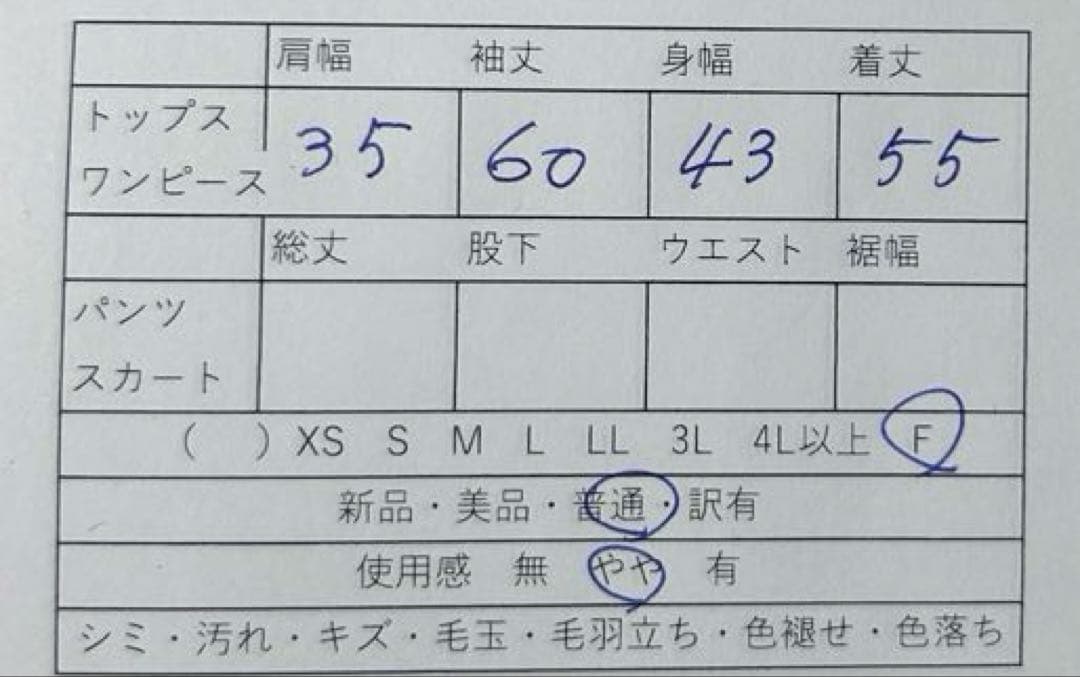 肩幅 袖丈 身幅 着丈
トップス
ワンピース 35 60 43 55
総丈 股下 ウエスト 裾幅
パンツ
スカート
( ) XS S M L LL 3L 4L以上 F
新品・美品・普通・訳有
使用感 無 やや 有
シミ・汚れ・キズ・毛玉・毛羽立ち・色褪せ・色落ち